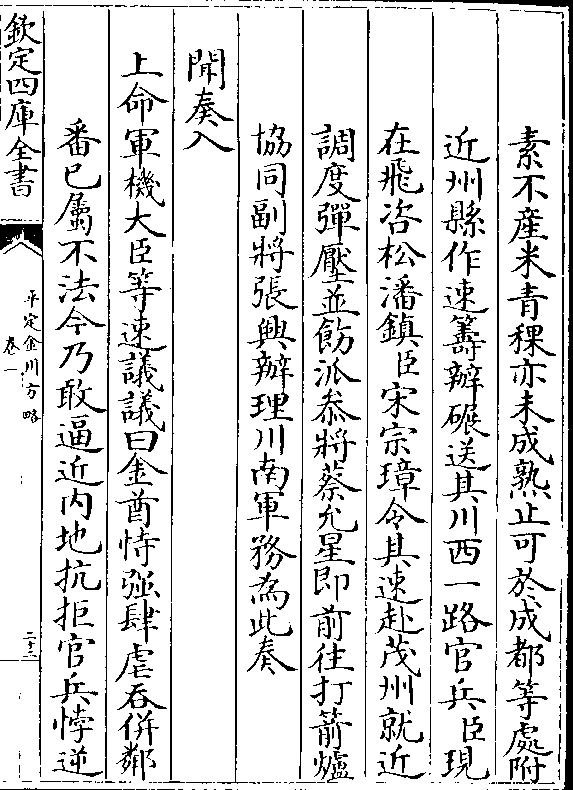 素不產米青稞亦未成熟止可於成都等處附
近州縣作速籌辦碾送其川西一路官兵臣現
在飛咨松潘鎮臣宋宗璋令其速赴茂州就近
調度彈壓並飭派叅將蔡允星即前往打箭爐
協同副將張興辦理川南軍務為此奏
聞奏入
上命軍機大臣等速議議曰金酋恃强肆虐吞併鄰
番已屬不法今乃敢逼近内地抗拒官兵悖逆
欽定四庫全書
平定金川方略
卷一
二十二